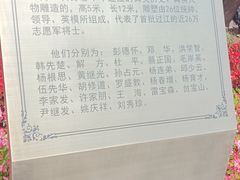 物雕造的。高5米，长12米，雕塑由26位统帅、
领导、英模所组成，代表了首批过江的近26万
志愿军将士。
他们分别为：彭德怀、邓 华、洪学智、
韩先楚、解 方、杜 平、蔡正国、毛岸英、
杨根思、黄继光、孙占元、杨连弟、邱少云、
伍先华、胡修道、罗盛教、杨春增、杨育才、
李家发、许家朋、王 海、雷宝森、
尹继发、姚庆祥、刘秀珍。